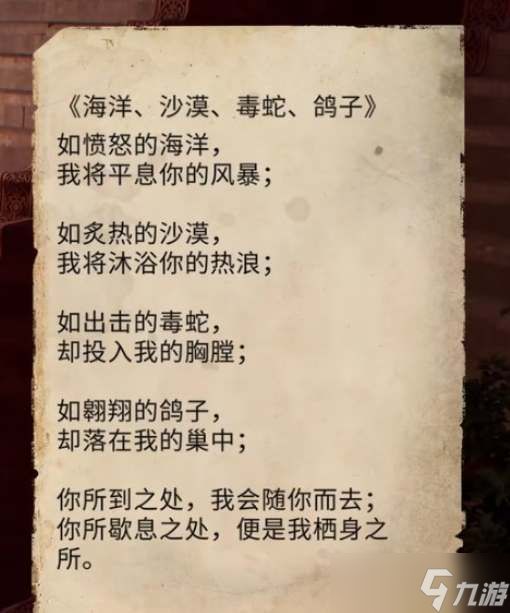 《海洋、沙漠、毒蛇、鸽子》
如愤怒的海洋，
我将平息你的风暴；
如炙热的沙漠，
我将沐浴你的热浪；
如出击的毒蛇，
却投入我的胸膛；
如翱翔的鸽子，
却落在我的巢中；
你所到之处，我会随你而去；
你所歇息之处，便是我栖身之
所。
九游